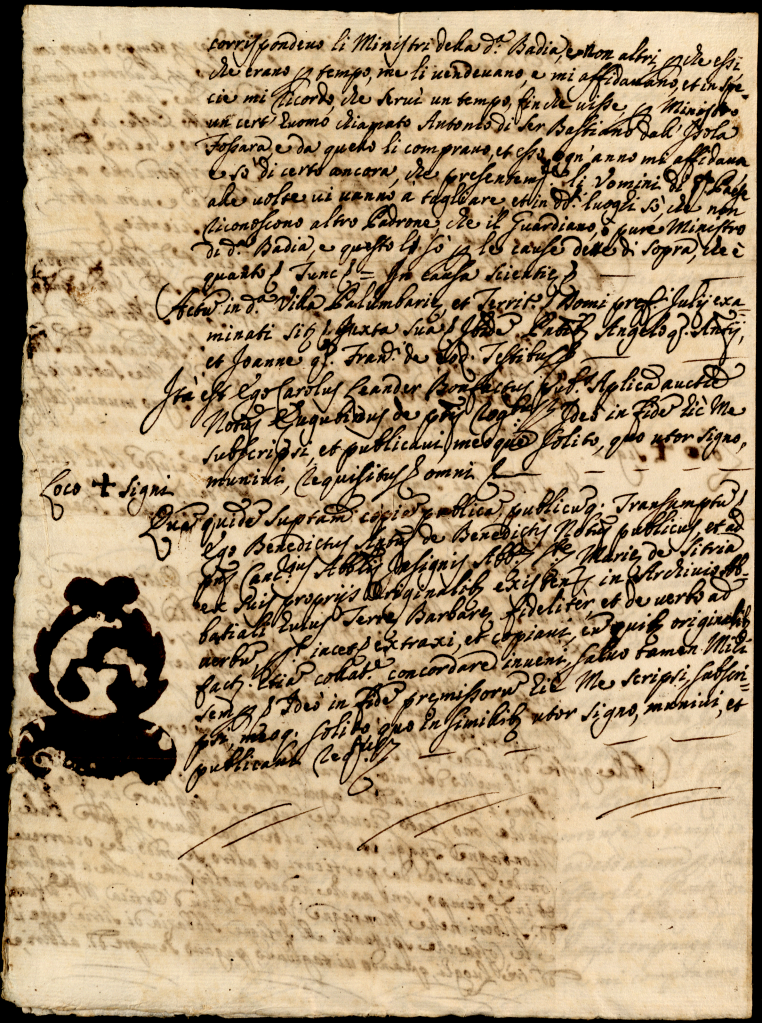 corrispondeno li Ministri della d.ª Badia, e non altri p che essi
che erano p tempo, me li vendevano, e mi affidavano, et in spe-
cie mi ricordo, che servì un tempo, finche visse p Ministro
un cert' huomo chiamato Antonio di Ser Bastiano dall' Isola
Fossara e da quello li compravo, et esso ogn' anno mi affidava
e sò di certo ancora, che presentem.te li Vomini di Paese
alle volte vi vanno a tagliare et in d.i luoghi sò, che non
riconoscono altro Padrone, che il Guardiano, ò pure Ministro
di d.ª Badia, e questo lo sò p le cause dette di sopra, che è
quanto Tunc = In causa scientie
Actu in d.ª Villa Palumbarie, et Territ. Domi pref. Julij exa-
minati sit. Juxta sua Ibide Patib. Angelo q. Antij,
et Joanne q. Fran.i de Testibus
Ita est Ego Carolus Leander Bonfactus pub. Aplica auct.e
Not.us Eugubinus de Rog.tus Ideo in fide hic Me
subscripsi, et publicavi meoque solito, quo utor signo,
munivi, Requisitus omni
Loco + signi
Qua quide suptam copie publice publicuq. Transumptu
Ego Benedictus de Benedictis Not.us publicus, et ad
pns Canc.ius Abb.lis Insignis Abb. S.te Marie de Sitria
ex suis proprijs originalib. existen. in Archivio Ab-
batiali huius Terre Barbare, fideliter et de verbo ad
verbu p. iacet extraxi, et copiavi, cu quib. originalib.
fact. Etia collat.e concordare inveni, salvo tamen
semp Ideo in fide premissoru hic Me scripsi, subscri-
psi, meoq. solito, quo in similib. utor signo, munivi, et
publicavi Req.tus